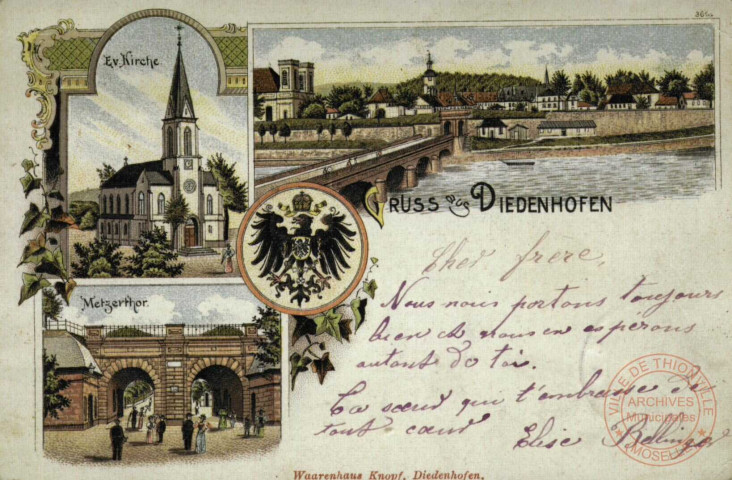 366
Ev. Kirche
GRUSS aus DIEDENHOFEN
Metzerthor.
Cher frère,
Nous nous portons toujours
bien et nous en espérons
autant de toi.
Ta soeur qui t'embrasse de
tout coeur
Elise
VILLE DE THIONVILLE
ARCHIVES
Municipales
MOSELLE
Waarenhaus Knopf, Diedenhofen.